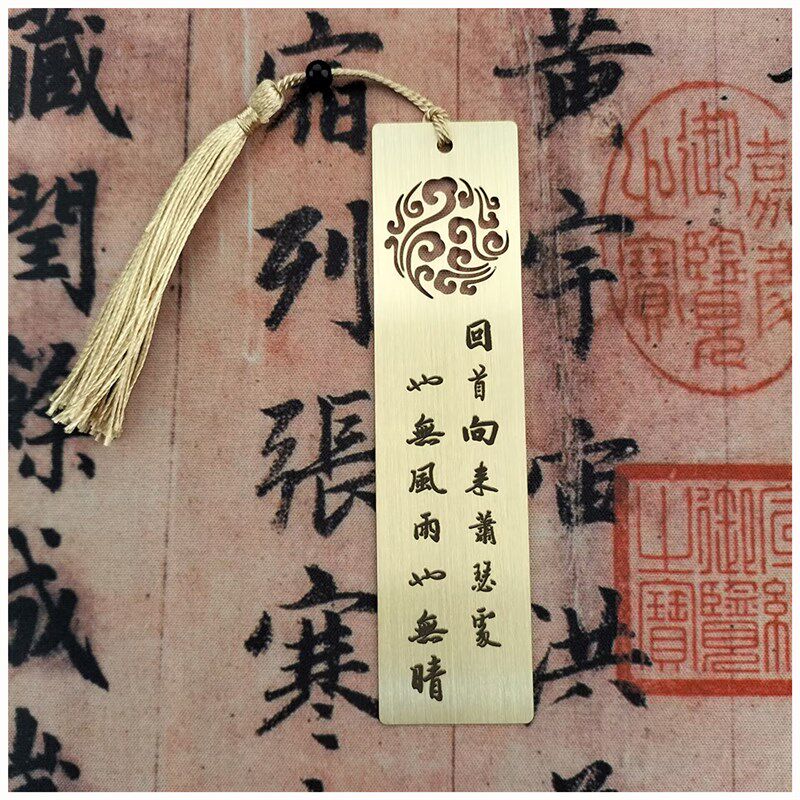 回首向来蕭瑟處
也無風雨也無晴
黃宇宙洪
宿列張寒
藏閏餘成歲
嘉慶
御覽
之寶
御覽
之寶